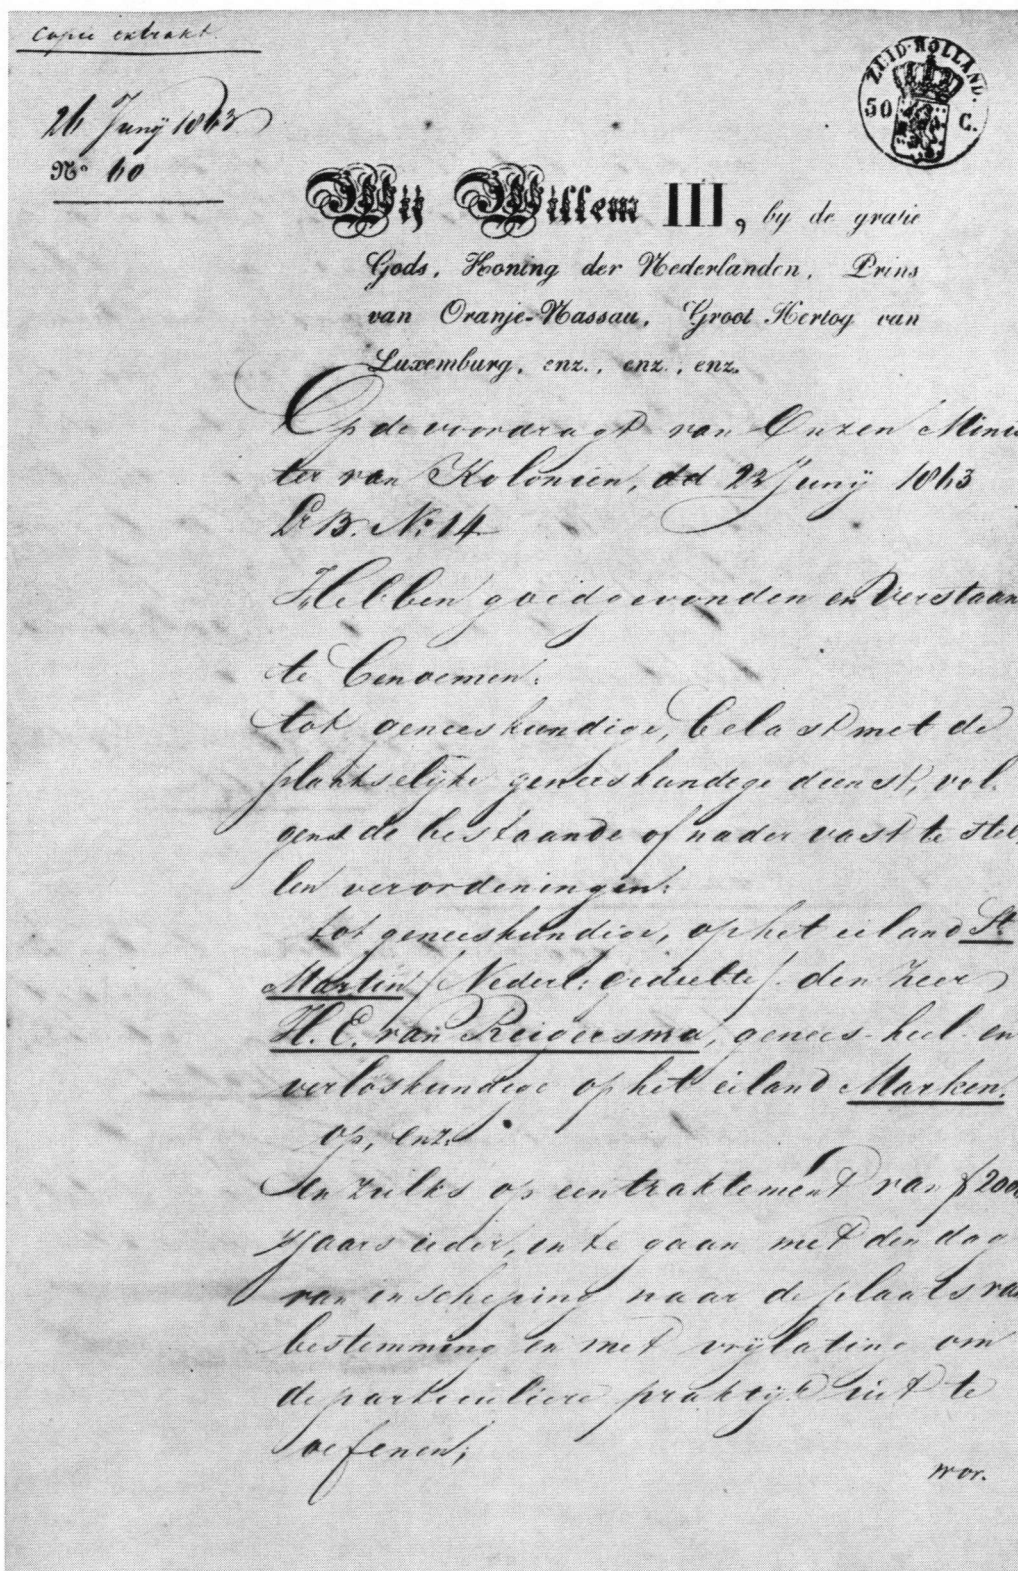 Copie extrakt.
ZUID-HOLLAND.
50 C.
26 Junij 1863
No 60
Wij Willem III, by de gratie
Gods, Koning der Nederlanden, Prins
van Oranje-Nassau, Groot Hertog van
Luxemburg, enz., enz., enz.
Op de voordragt van Onzen Minis
ter van Koloniën, dd 23 Junij 1863
Lr B. No 14
Hebben goedgevonden en Verstaan
te benoemen:
tot geneeskundige, belast met de
plaatselijke geneeskundige dienst, vol-
gens de bestaande of nader vast te stel-
len verordeningen:
tot geneeskundige, op het eiland St
Martin / Nederl: gedeelte /. den heer
H. E. van Reigersma, genees- heel- en
verloskundige op het eiland Marken.
op, enz.
En zulks op een traktement van ƒ 2000
's jaars ieder, in te gaan met den dag
van inscheping naar de plaats van
bestemming en met vrijlating om
de particuliere praktijk uit te
oefenen;
wor.